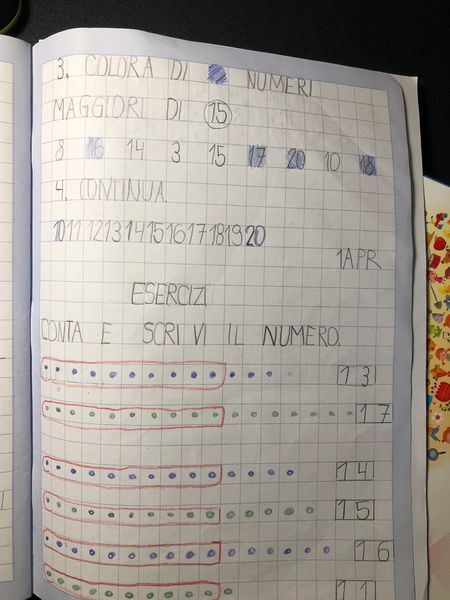 3. COLORA DI NUMERI
MAGGIORI DI 15
8 16 14 3 15 17 20 10 18
4. CONTINUA.
10 11 12 13 14 15 16 17 18 19 20
1 APR
ESERCIZI
CONTA E SCRIVI IL NUMERO.
13
17
14
15
16
11